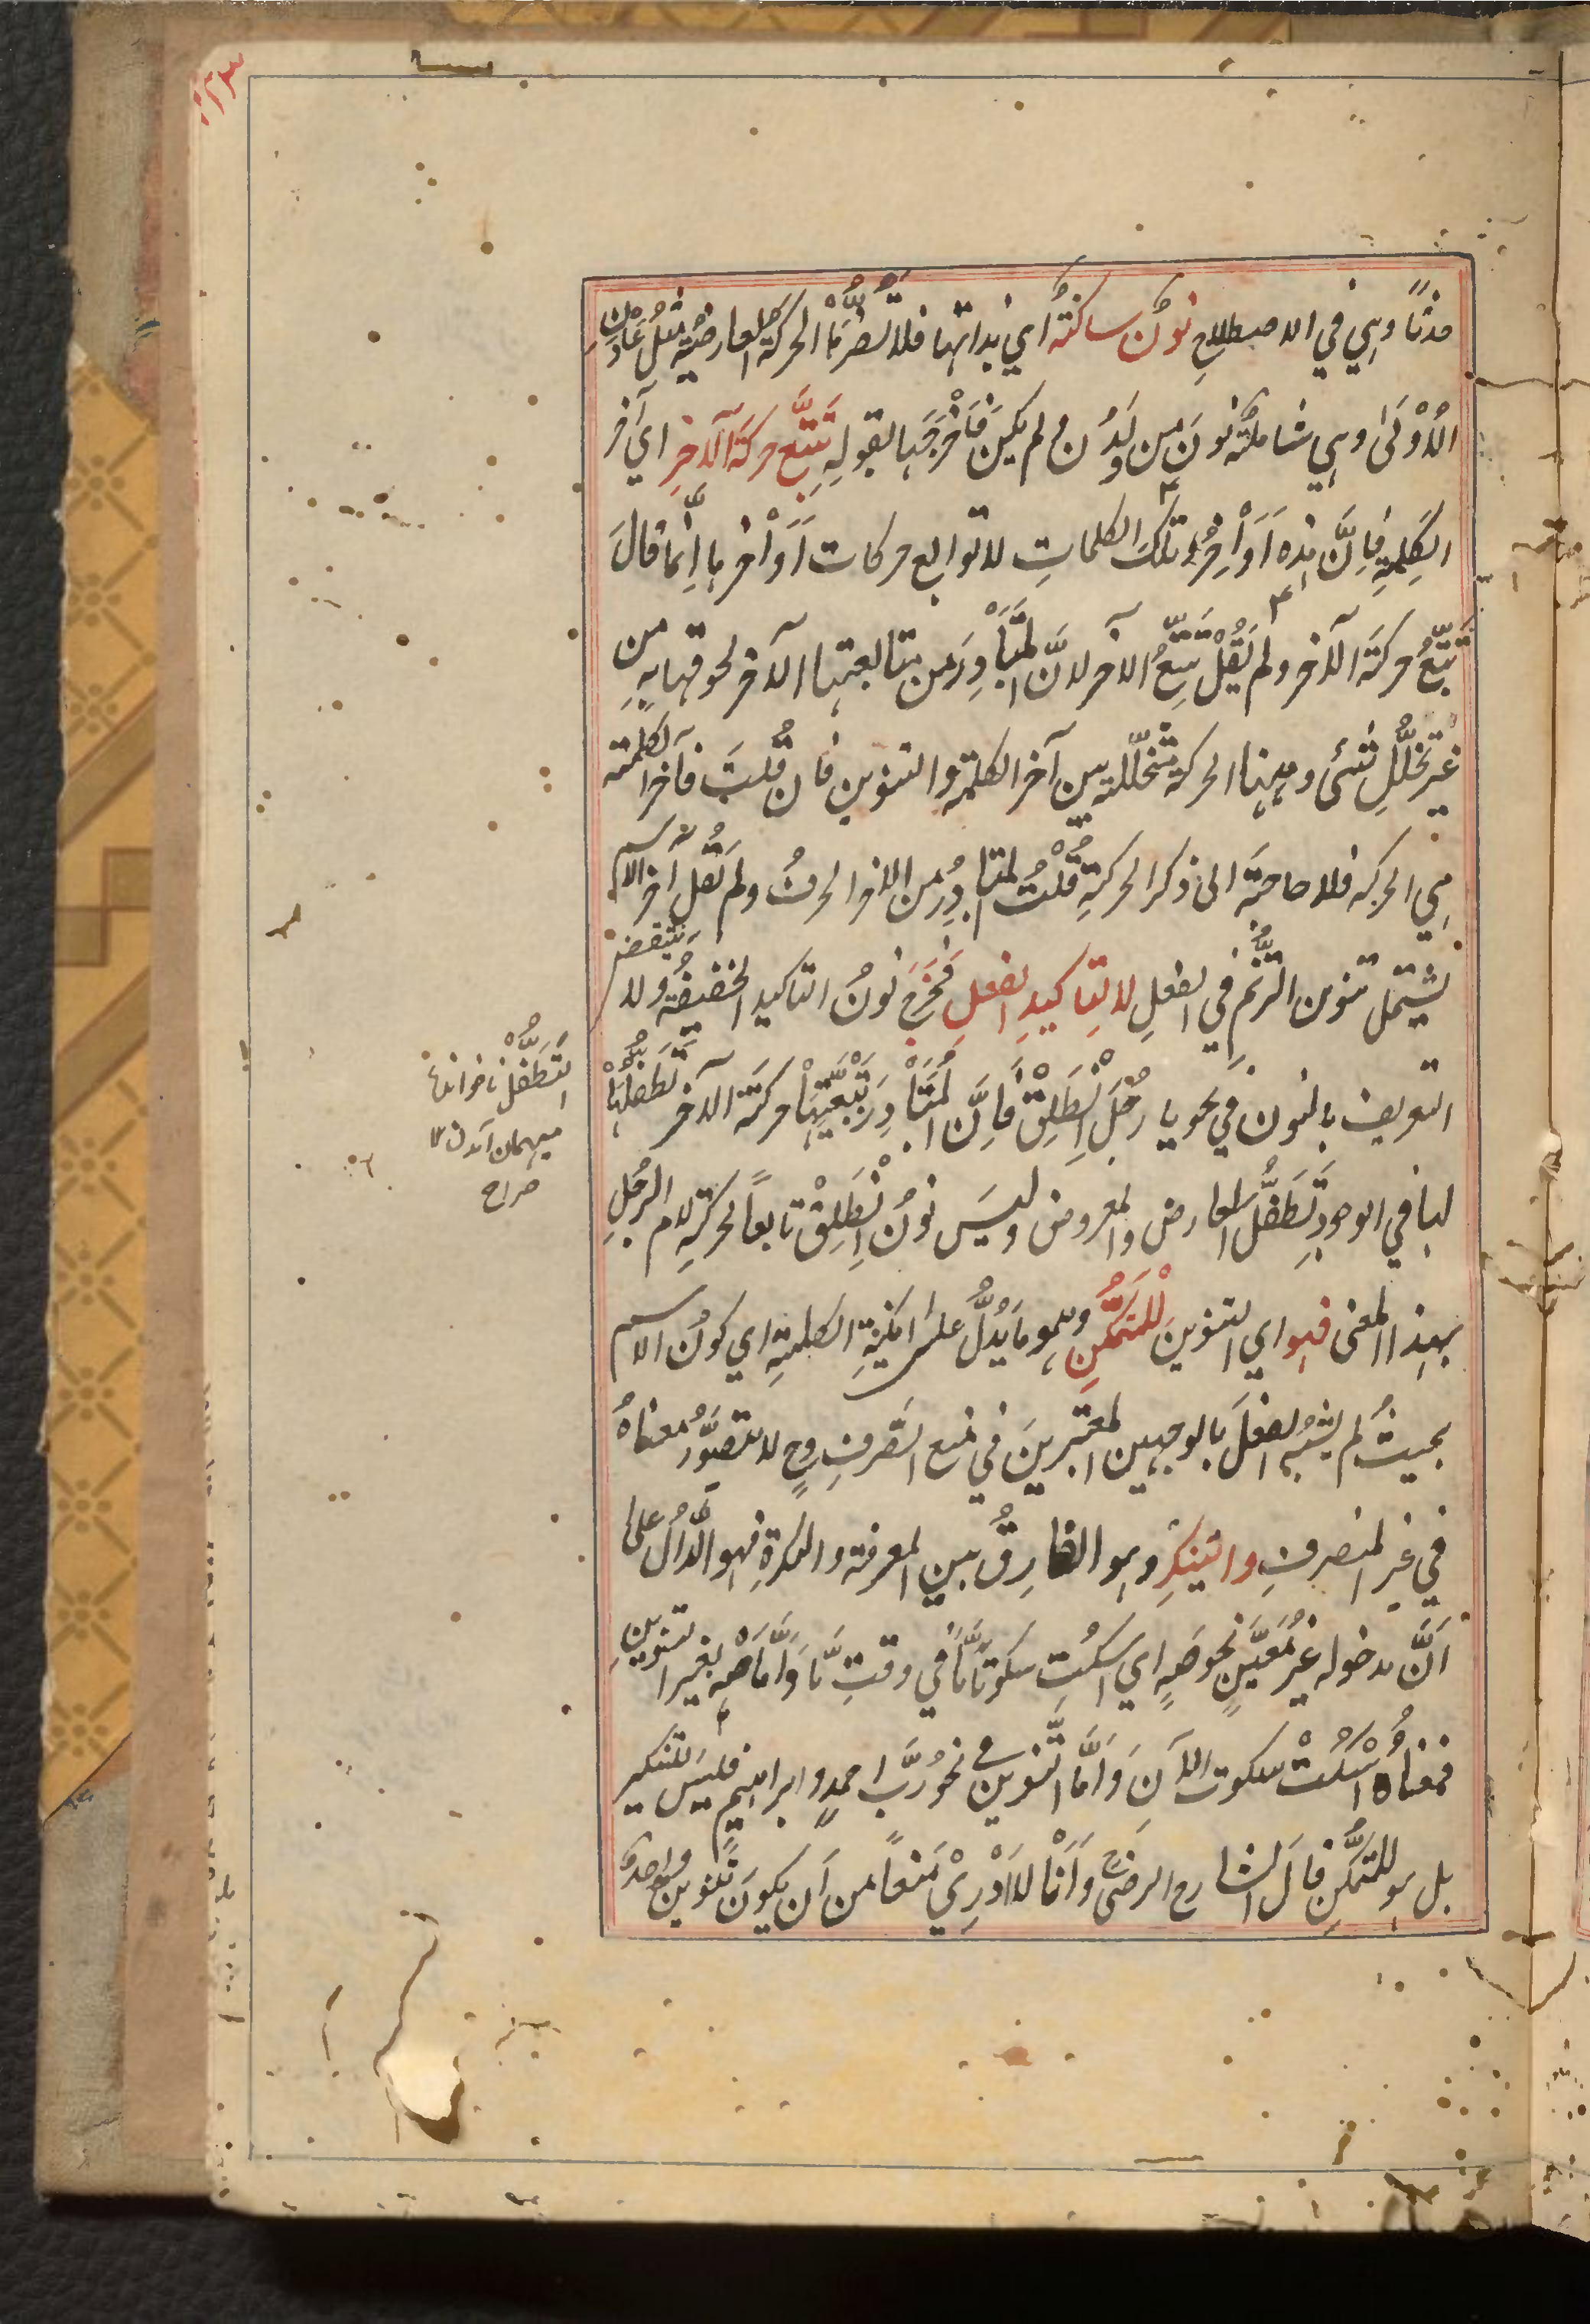 حدثًا وهي في الاصطلاحِ نونٌ ساكنةٌ اي بذاتها فلا تَضُرُّهَا الحركةُ العارضيةُ مثلُ عَادَنِ
الُاوْلَىٰ وهي شاملةٌ نونَ مِن ولَدُن ولم يكن فَاَخْرَجَها بقولِهِ تَتْبَعُ حركةَ الآخِرِ اي آخر
الكَلِمةِ فاِنَّ هذه اَوَاْخِرُ تلكَ الكلماتِ لا توابع حركات اَوَاْخرها اِنَّما قالَ
تَتْبَعُ حركةَ الآخر ولم يَقُلْ تَتْبَعُ الآخر لانَّ المُتَبَاْدِرَ من متابعتها الآخر لحوقها به من
غيرِ تَخَلُّلِ شئٍ وههنا الحركة متخلّلة بين آخر الكلمةِ والتنوين فان قُلتَ فآخر الكلمة
هي الحركة فلا حاجةَ الى ذكر الحركةِ قُلْتُ المتبادِرُ من الآخر الحرفُ ولم يَقُل آخر الاسم
ليشتمل تنوين التَّرَنُّمِ في الفعلِ لا لِتاكيدِ الفعلِ فَخَرَجَ نونُ التاكيد الخفيفةُ ولا ينتقض
التعريف بالنون في نحو يا رَجُلُ اِنْطَلِقْ فَاِنَّ المُتَبَاْدِرَ تَبْعِيَّتِهَاْ حركةَ الآخر تَطَفُّلُهَاْ
لها في الوجود تَطَفُّلَ العارضِ والمعروض وليسَ نونُ اِنْطَلِقْ تابعًا لحركةِ لام الرجُلِ
بهذا المعنى فهو اي التنوينَ لِلتَّمَكُّنِ وهو ما يَدُلُّ على امكنيةِ الكلمةِ اي كونُ الاسم
بحيثُ لم يشبهِ الفعلَ بالوجهين المعتبرينَ في منع الصَّرفِ وح لا يتصوَّرُ معناهُ
في غير المنصرفِ والتنكِيرِ وهو الفارِقُ بين المعرفة والنكرةِ فهو الدَّالُ على
اَنَّ مدخوله غيرُ مُعَيَّنٍ نحو صَهٍ اي اسكُت سكوتًا مَّا في وقتٍ مَّا وَاَمَّا صَهْ بغير التنوينِ
فمعناهُ اسْكُتْ سكوت الآنَ وَاَمَّا التَّنوين في نحو رُبَّ احمدٍ وابراهيمٍ فليسَ للتنكير
بل هو للتمكُّنِ قالَ الشارح الرضيّ وَاَنَا لا اَدْرِيْ مَنعًا من اَن يكونَ تَنوينٌ واحدٌ
التَّطَفُّلْ ناخوانده
ميهمان آمدن ١٢
صراح